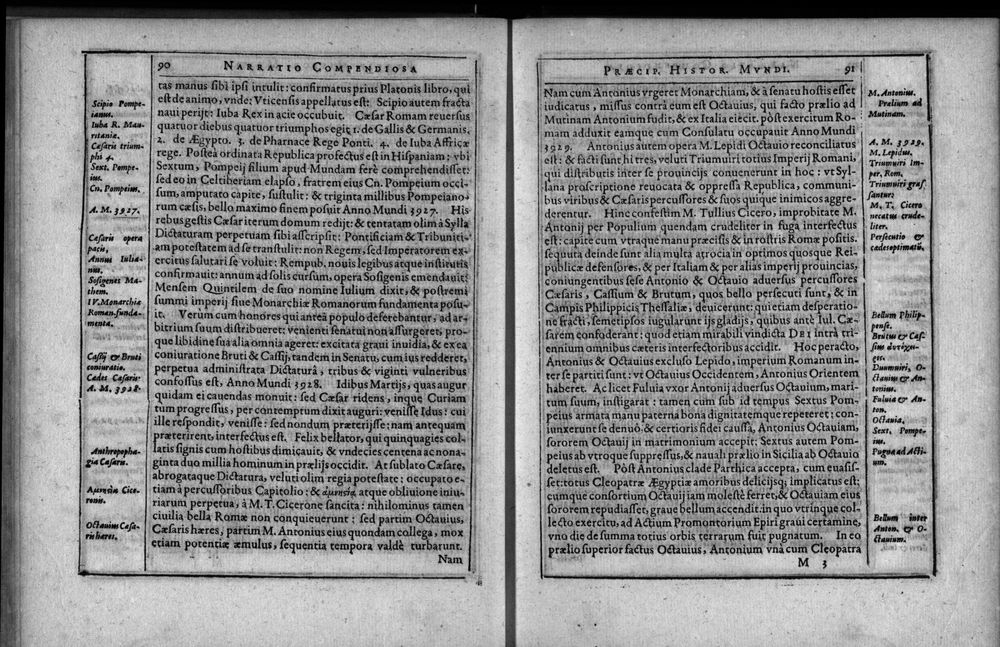 90
NARRATIO COMPENDIOSA
tas manus sibi ipsi intulit: confirmatus prius Platonis libro, qui
est de animo, vnde: Vticensis appellatus est: Scipio autem fracta
naui perijt: Iuba Rex in acie occubuit. Cæsar Romam reuersus
quatuor diebus quatuor triumphos egit 1. de Gallis & Germanis,
2. de Ægypto. 3. de Pharnace Rege Ponti. 4. de Iuba Affricæ
rege. Posteà ordinata Republica profectus est in Hispaniam; vbi
Sextum, Pompeij filium apud Mundam ferè comprehendisset:
sed eo in Celtiberiam elapso, fratrem eius Cn. Pompeium occi-
sum, amputato capite, sustulit: & triginta millibus Pompeiano-
rum cæsis, bello maximo finem posuit Anno Mundi 3927. His
rebus gestis Cæsar iterum domum redijt: & tentatam olim à Sylla
Dictaturam perpetuam sibi asscripsit: Pontificiam & Tribuniti-
am potestatem ad se transtulit: non Regem, sed Imperatorem ex-
ercitus salutari se voluit: Rempub. nouis legibus atque institutis
confirmauit: annum ad solis cursum, opera Sosigenis emendauit:
Mensem Quintilem de suo nomine Iulium dixit, & postremi
summi imperij siue Monarchiæ Romanorum fundamenta posu-
it. Verum cum honores qui anteà populo deferebantur, ad ar-
bitrium suum distribueret: venienti senatui non assurgeret, pro-
que libidine sua alia omnia ageret: excitata graui inuidia, & ex ea
coniuratione Bruti & Cassij, tandem in Senatu, cum ius redderet,
perpetua administrata Dictaturâ, tribus & viginti vulneribus
confossus est, Anno Mundi 3928. Idibus Martijs, quas augur
quidam ei cauendas monuit: sed Cæsar ridens, inque Curiam
tum progressus, per contemptum dixit auguri: venisse Idus: cui
ille respondit, venisse: sed nondum præterijsse: nam antequam
præterirent, interfectus est. Felix bellator, qui quinquagies col-
latis signis cum hostibus dimicauit, & vndecies centena ac nona-
ginta duo millia hominum in prælijs occidit. At sublato Cæsare,
abrogataque Dictatura, veluti olim regia potestate: occupato e-
tiam à percussoribus Capitolio: & ἀμνησία, atque obliuione iniu-
riarum perpetua, à M. T. Cicerone sancita: nihilominus tamen
ciuilia bella Romæ non conquieuerunt: sed partim Octauius,
Cæsaris hæres, partim M. Antonius eius quondam collega, mox
etiam potentiæ æmulus, sequentia tempora valdè turbarunt.
Nam
Scipio Pompe-
ianus.
Iuba R. Mau-
ritaniæ.
Cæsaris trium-
phi 4.
Sext. Pompe-
ius.
Cn. Pompeius.
A. M. 3927.
Cæsaris opera
pacis,
Annus Iulia-
nus.
Sosigenes Ma-
them.
IV. Monarchiæ
Roman. funda-
menta.
Cassij & Bruti
coniuratio.
Cædes Cæsaris
A. M. 3928.
Anthropopha-
gia Cæsaris.
Αμνησία Cice-
ronis.
Octauius Cæsa-
ris hæres.
PRÆCIP. HISTOR. MVNDI.
91
Nam cum Antonius vrgeret Monarchiam, & à senatu hostis esset
iudicatus, missus contrà eum est Octauius, qui facto prælio ad
Mutinam Antonium fudit, & ex Italia eiecit. pòst exercitum Ro-
mam adduxit eamque cum Consulatu occupauit Anno Mundi
3929. Antonius autem opera M. Lepidi Octauio reconciliatus
est: & facti sunt hi tres, veluti Triumuiri totius Imperij Romani,
qui distributis inter se prouincijs conuenerunt in hoc: vt Syl-
lana proscriptione reuocata & oppressa Republica, communi-
bus viribus & Cæsaris percussores & suos quique inimicos aggre-
derentur. Hinc confestim M. Tullius Cicero, improbitate M.
Antonij per Populium quendam crudeliter in fuga interfectus
est: capite cum vtraque manu præcisis & in rostris Romæ positis.
sequuta deinde sunt alia multa atrocia in optimos quosque Rei-
publicæ defensores, & per Italiam & per alias imperij prouincias,
coniungentibus sese Antonio & Octauio aduersus percussores
Cæsaris, Cassium & Brutum, quos bello persecuti sunt, & in
Campis Philippicis Thessaliæ, deuicerunt: qui etiam desperatio-
ne fracti, semetipsos iugularunt ijs gladijs, quibus antè Iul. Cæ-
sarem confoderant: quod etiam mirabili vindicta DEI intrà tri-
ennium omnibus cæteris interfectoribus accidit. Hoc peracto,
Antonius & Octauius excluso Lepido, imperium Romanum in-
ter se partiti sunt: vt Octauius Occidentem, Antonius Orientem
haberet. Ac licet Fuluia vxor Antonij aduersus Octauium, mari-
tum suum, instigarat: tamen cum sub id tempus Sextus Pom-
peius armata manu paterna bona dignitatemque repeteret: con-
iunxerunt se denuò & certioris fidei caussâ, Antonius Octauiam,
sororem Octauij in matrimonium accepit: Sextus autem Pom-
peius ab vtroque suppressus, & nauali prælio in Sicilia ab Octauio
deletus est. Pòst Antonius clade Parthica accepta, cum euasis-
set: totus Cleopatræ Ægyptiæ amoribus delicijsq; implicatus est:
cumque consortium Octauij iam molestè ferret, & Octauiam eius
sororem repudiasset, graue bellum accendit. in quo vtrinque col-
lecto exercitu, ad Actium Promontorium Epiri graui certamine,
vno die de summa totius orbis terrarum fuit pugnatum. In eo
prælio superior factus Octauius, Antonium vnà cum Cleopatra
M 3
M. Antonius.
Prælium ad
Mutinam.
A. M. 3929.
M. Lepidus,
Triumuiri Im-
per. Rom.
Triumuiri graf
santur:
M. T. Cicero
necatus crude-
liter.
Persecutio &
cædes optimatū,
Bellum Philip-
pense.
Brutus & Cas-
sius
Duumuiri, O-
ctauius & An-
tonius.
Fuluia & An-
ton.
Octauia,
Sext. Pompe-
ius.
Pugna ad Acti-
um.
Bellum inter
Anton. & O-
ctauium.